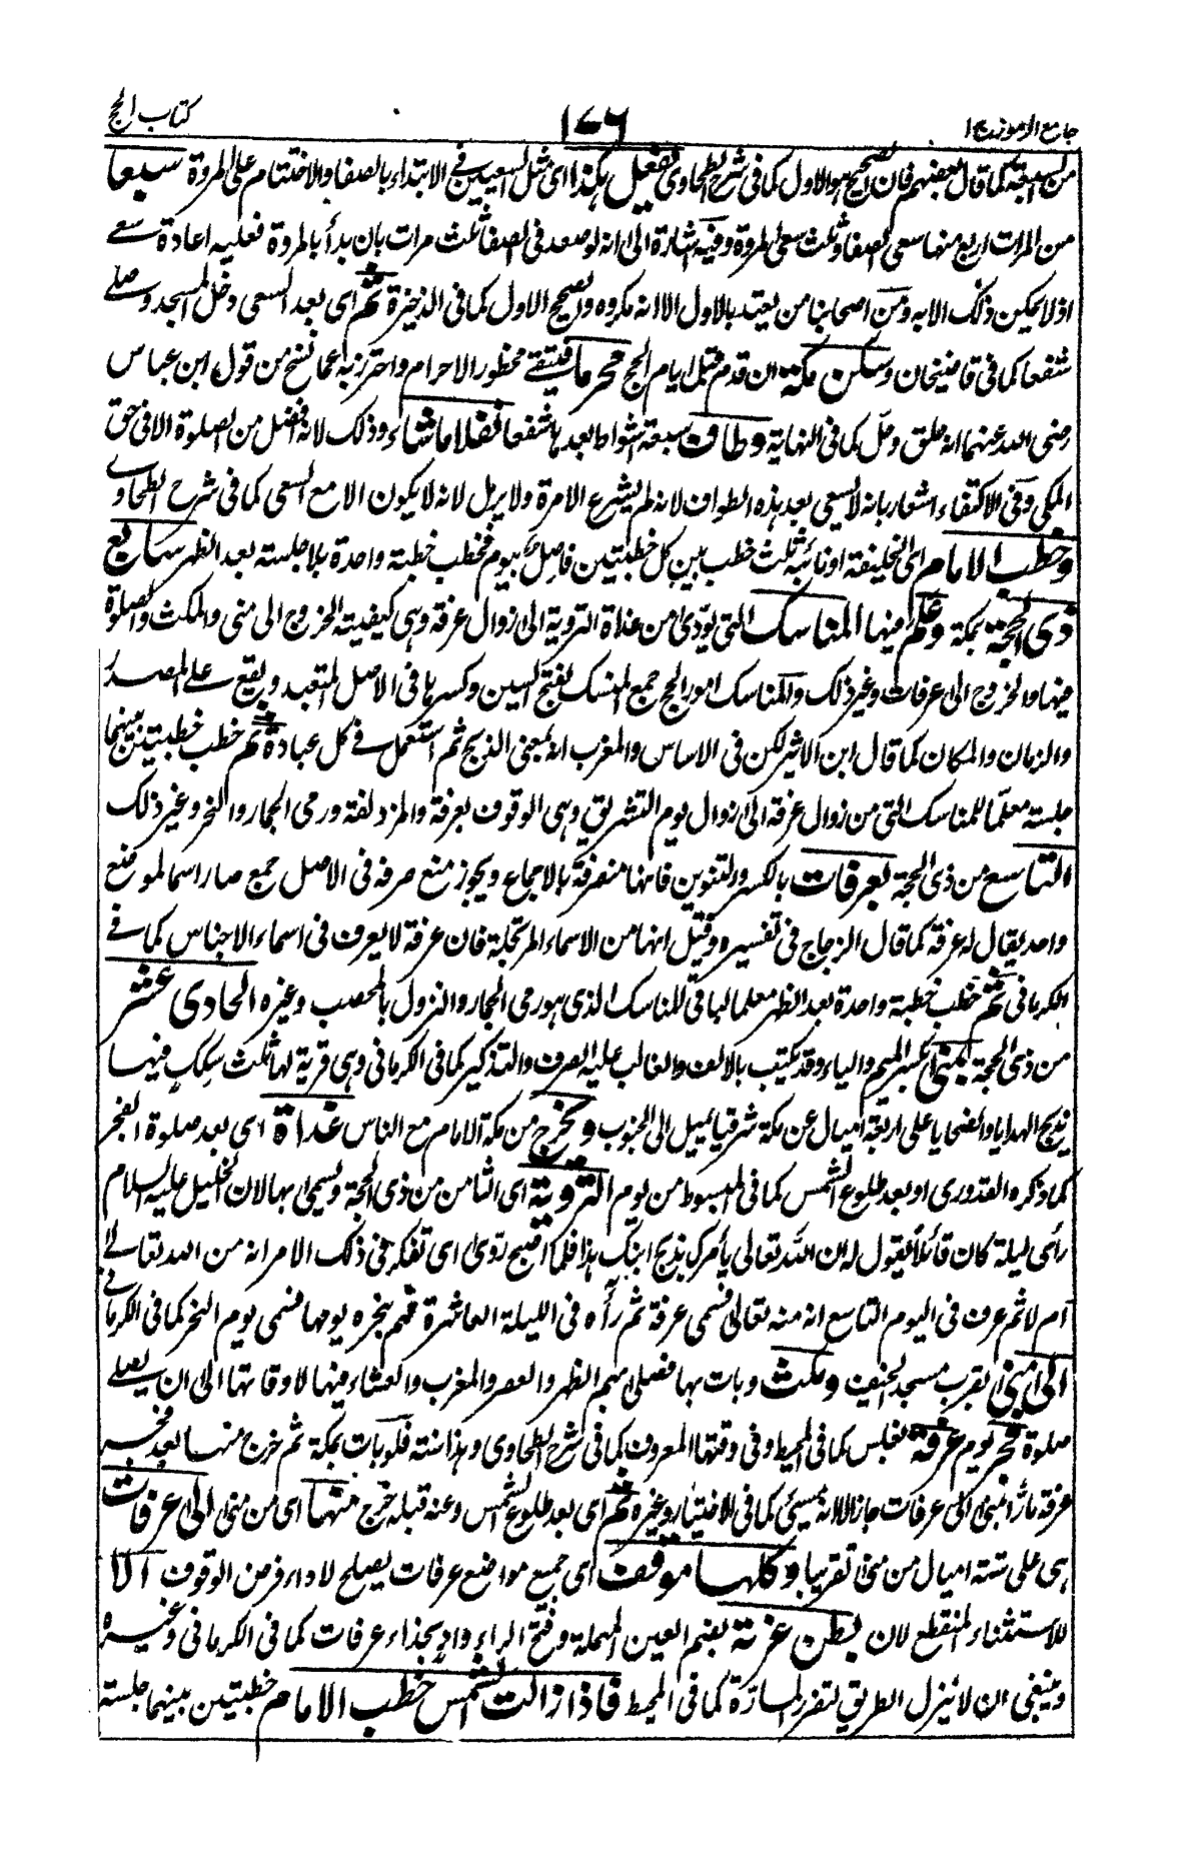 جامع الرموز ج١
١٧٦
كتاب الحج
من السبعة كما قال بعضهم فان الصحيح هو الاول كما فى شرح الطحاوى يفعل هكذا اى مثل السعيين فى الابتداء بالصفا والاختتام على المروة سبعا
من المرات اربع منها سعى الصفا وثلث سعى المروة وفيه اشارة الى انه لو صعد فى الصفا ثلث مرات بان بدأ بالمروة فعليه اعادة سعى
اذ لا يمكن ذلك الا به ومن اصحابنا من يعتد بالاول الا انه مكروه والصحيح الاول كما فى الذخيرة ثم اى بعد السعى دخل المسجد وصلى
شفعا كما فى قاضيخان وسكن مكة ان قدم قبل ايام الحج محرما فيتقى محظور الاحرام واحترز به عما نسخ من قول ابن عباس
رضى الله عنهما انه حلق وحل كما فى النهاية وطاف سبعة اشواط بعدها شفعا نفلا ما شاء وذلك لانه افضل من الصلوة الا فى حق
المكى وفى الاكتفاء اشعار بانه لا يسعى بعد هذه الطواف لانه لم يشرع الا مرة ولا يرمل لانه لا يكون الا مع السعى كما فى شرح الطحاوى
وخطب الامام اى الخليفة او نائبه ثلث خطب بين كل خطبتين فاصل بيوم فخطب خطبة واحدة بلا جلسة بعد الظهر سابع
ذى الحجة بمكة وعلم فيها المناسك التى يؤدى من غداة التروية الى زوال عرفة وهى كيفية الخروج الى منى والمكث والصلوة
فيها والخروج الى عرفات وغير ذلك والمناسك امور الحج جمع المنسك بفتح السين وكسرها فى الاصل المتعبد ويقع على المصدر
والزمان والمكان كما قال ابن الاثير لكن فى الاساس والمغرب انه بمعنى الذبح ثم استعمل فى كل عبادة ثم خطب خطبتين بينهما
جلسة معلما للمناسك التى من زوال عرفة الى زوال يوم التشريق وهى الوقوف بعرفة والمزدلفة ورمى الجمار والنحر وغير ذلك
التاسع من ذى الحجة بعرفات بالكسر والتنوين فانها منصرفة بالاجماع ويجوز منع صرفه فى الاصل جمع صار اسما لموضع
واحد يقال له عرفة كما قال الزجاج فى تفسيره وقيل انها من الاسماء المرتجلة فان عرفة لا يعرف فى اسماء الاجناس كما فى
الكرمانى ثم خطب خطبة واحدة بعد الظهر معلما لباقى المناسك الذى هو رمى الجمار والنزول بالمحصب وغيره الحادى عشر
من ذى الحجة بمنى بكسر الميم والياء وقد يكتب بالالف والغالب عليه الصرف والتذكير كما فى الكرمانى وهى قرية لها ثلث سكك فيها
يذبح الهدايا والضحايا على اربعة اميال عن مكة شرقيا يميل الى الجنوب ويخرج من مكة الامام مع الناس غداة اى بعد صلوة الفجر
كما ذكره القدورى او بعد طلوع الشمس كما فى المبسوط من يوم التروية اى الثامن من ذى الحجة ويسمى بها لان الخليل عليه السلام
رأى ليلة كان قائلا يقول له ان الله تعالى يأمرك بذبح ابنك هذا فلما اصبح روى اى تفكر فى ذلك الامر انه من الله تعالى
ام لا ثم عرف فى اليوم التاسع انه منه تعالى فسمى عرفة ثم رأه فى الليلة العاشرة فهم بنحره يومها فسمى يوم النحر كما فى الكرمانى
الى منى بقرب مسجد الخيف ومكث وبات بها فصلى بهم الظهر والعصر والمغرب والعشاء فيها لاوقاتها الى ان يصلى
صلوة فجر يوم عرفة بغلس كما فى المحيط وفى وقتها المعروف كما فى شرح الطحاوى وهذا سنة فلو بات بمكة ثم خرج منها بعد فجر
عرفة مارا بمنى الى عرفات جاز الا انه مسيئ كما فى الاختيار وغيره ثم اى بعد طلوع الشمس وعنه قبله خرج منها اى من منى الى عرفات
هى على ستة اميال من منى تقريبا وكلها موقف اى جميع مواضع عرفات يصلح لاداء فرض الوقوف الا
للاستثناء المنقطع لان بطن عرنة بضم العين المهملة وفتح الراء واد بحذاء عرفات كما فى الكرمانى وغيره
وينبغى ان لا ينزل الطريق لتضرر المارة كما فى المحيط فاذا زالت الشمس خطب الامام خطبتين بينهما جلسة